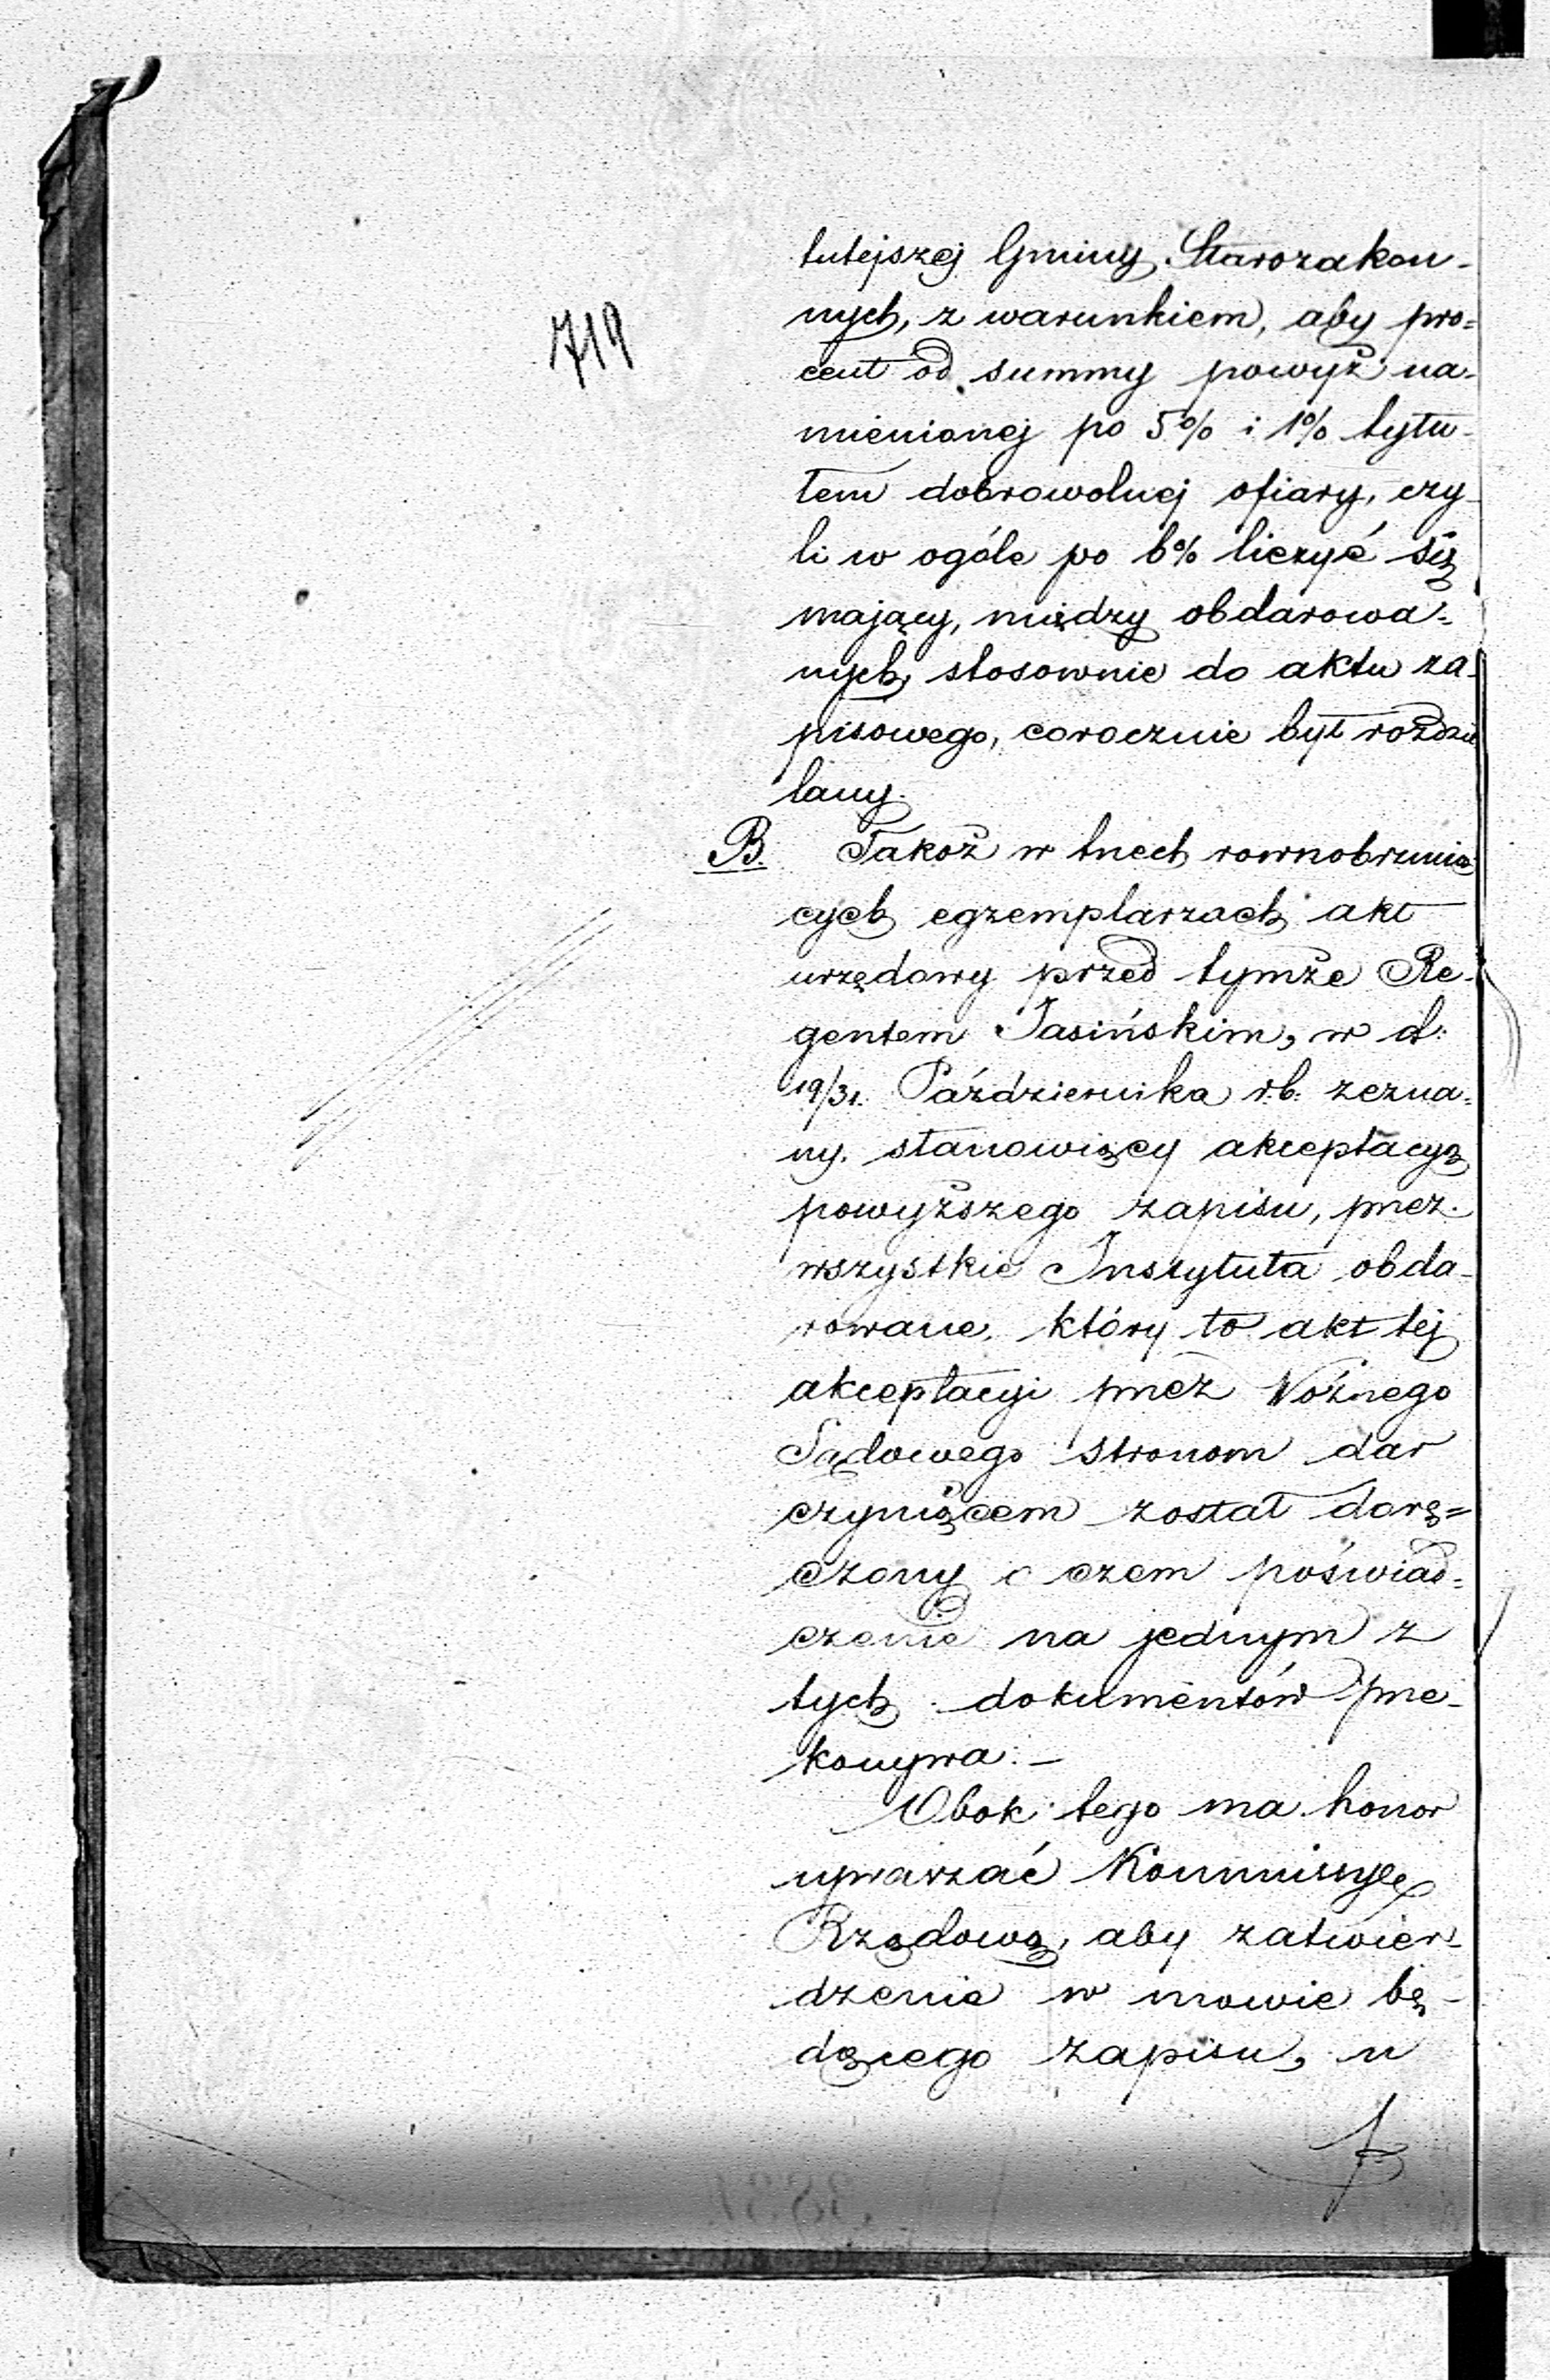 tutejszej Gminy Starozakon-
719
nych, z warunkiem, aby pro=
cent od summy powyż na-
mienionej po 5% i 1% tytu-
łem dobrowolnej ofiary, czy-
li w ogóle po 6% liczyć się
mający, między obdarowa=
nych, stosownie do aktu za-
pisowego, corocznie był rozdzie
lany.
B. Takoż w trzech rownobrzmią
cych egzemplarzach akt
urzędowy przed tymże Re-
gentem Jasińskim, w d:
19/31. Października r.b. zezna=
ny. stanowiący akceptacyą
powyższego zapisu, przez
wszystkie Instytuta obda-
rowane, który to akt tej
akceptacyi przez Woźnego
Sądowego stronom dar
czyniącem został dorę=
czony o czem poświad=
czenie na jednym z
tych dokumentów prze-
konywa. –
Obok tego ma honor
upraszać Kommissyę
Rządową, aby zatwier-
dzenie w mowie bę-
dącego zapisu, u